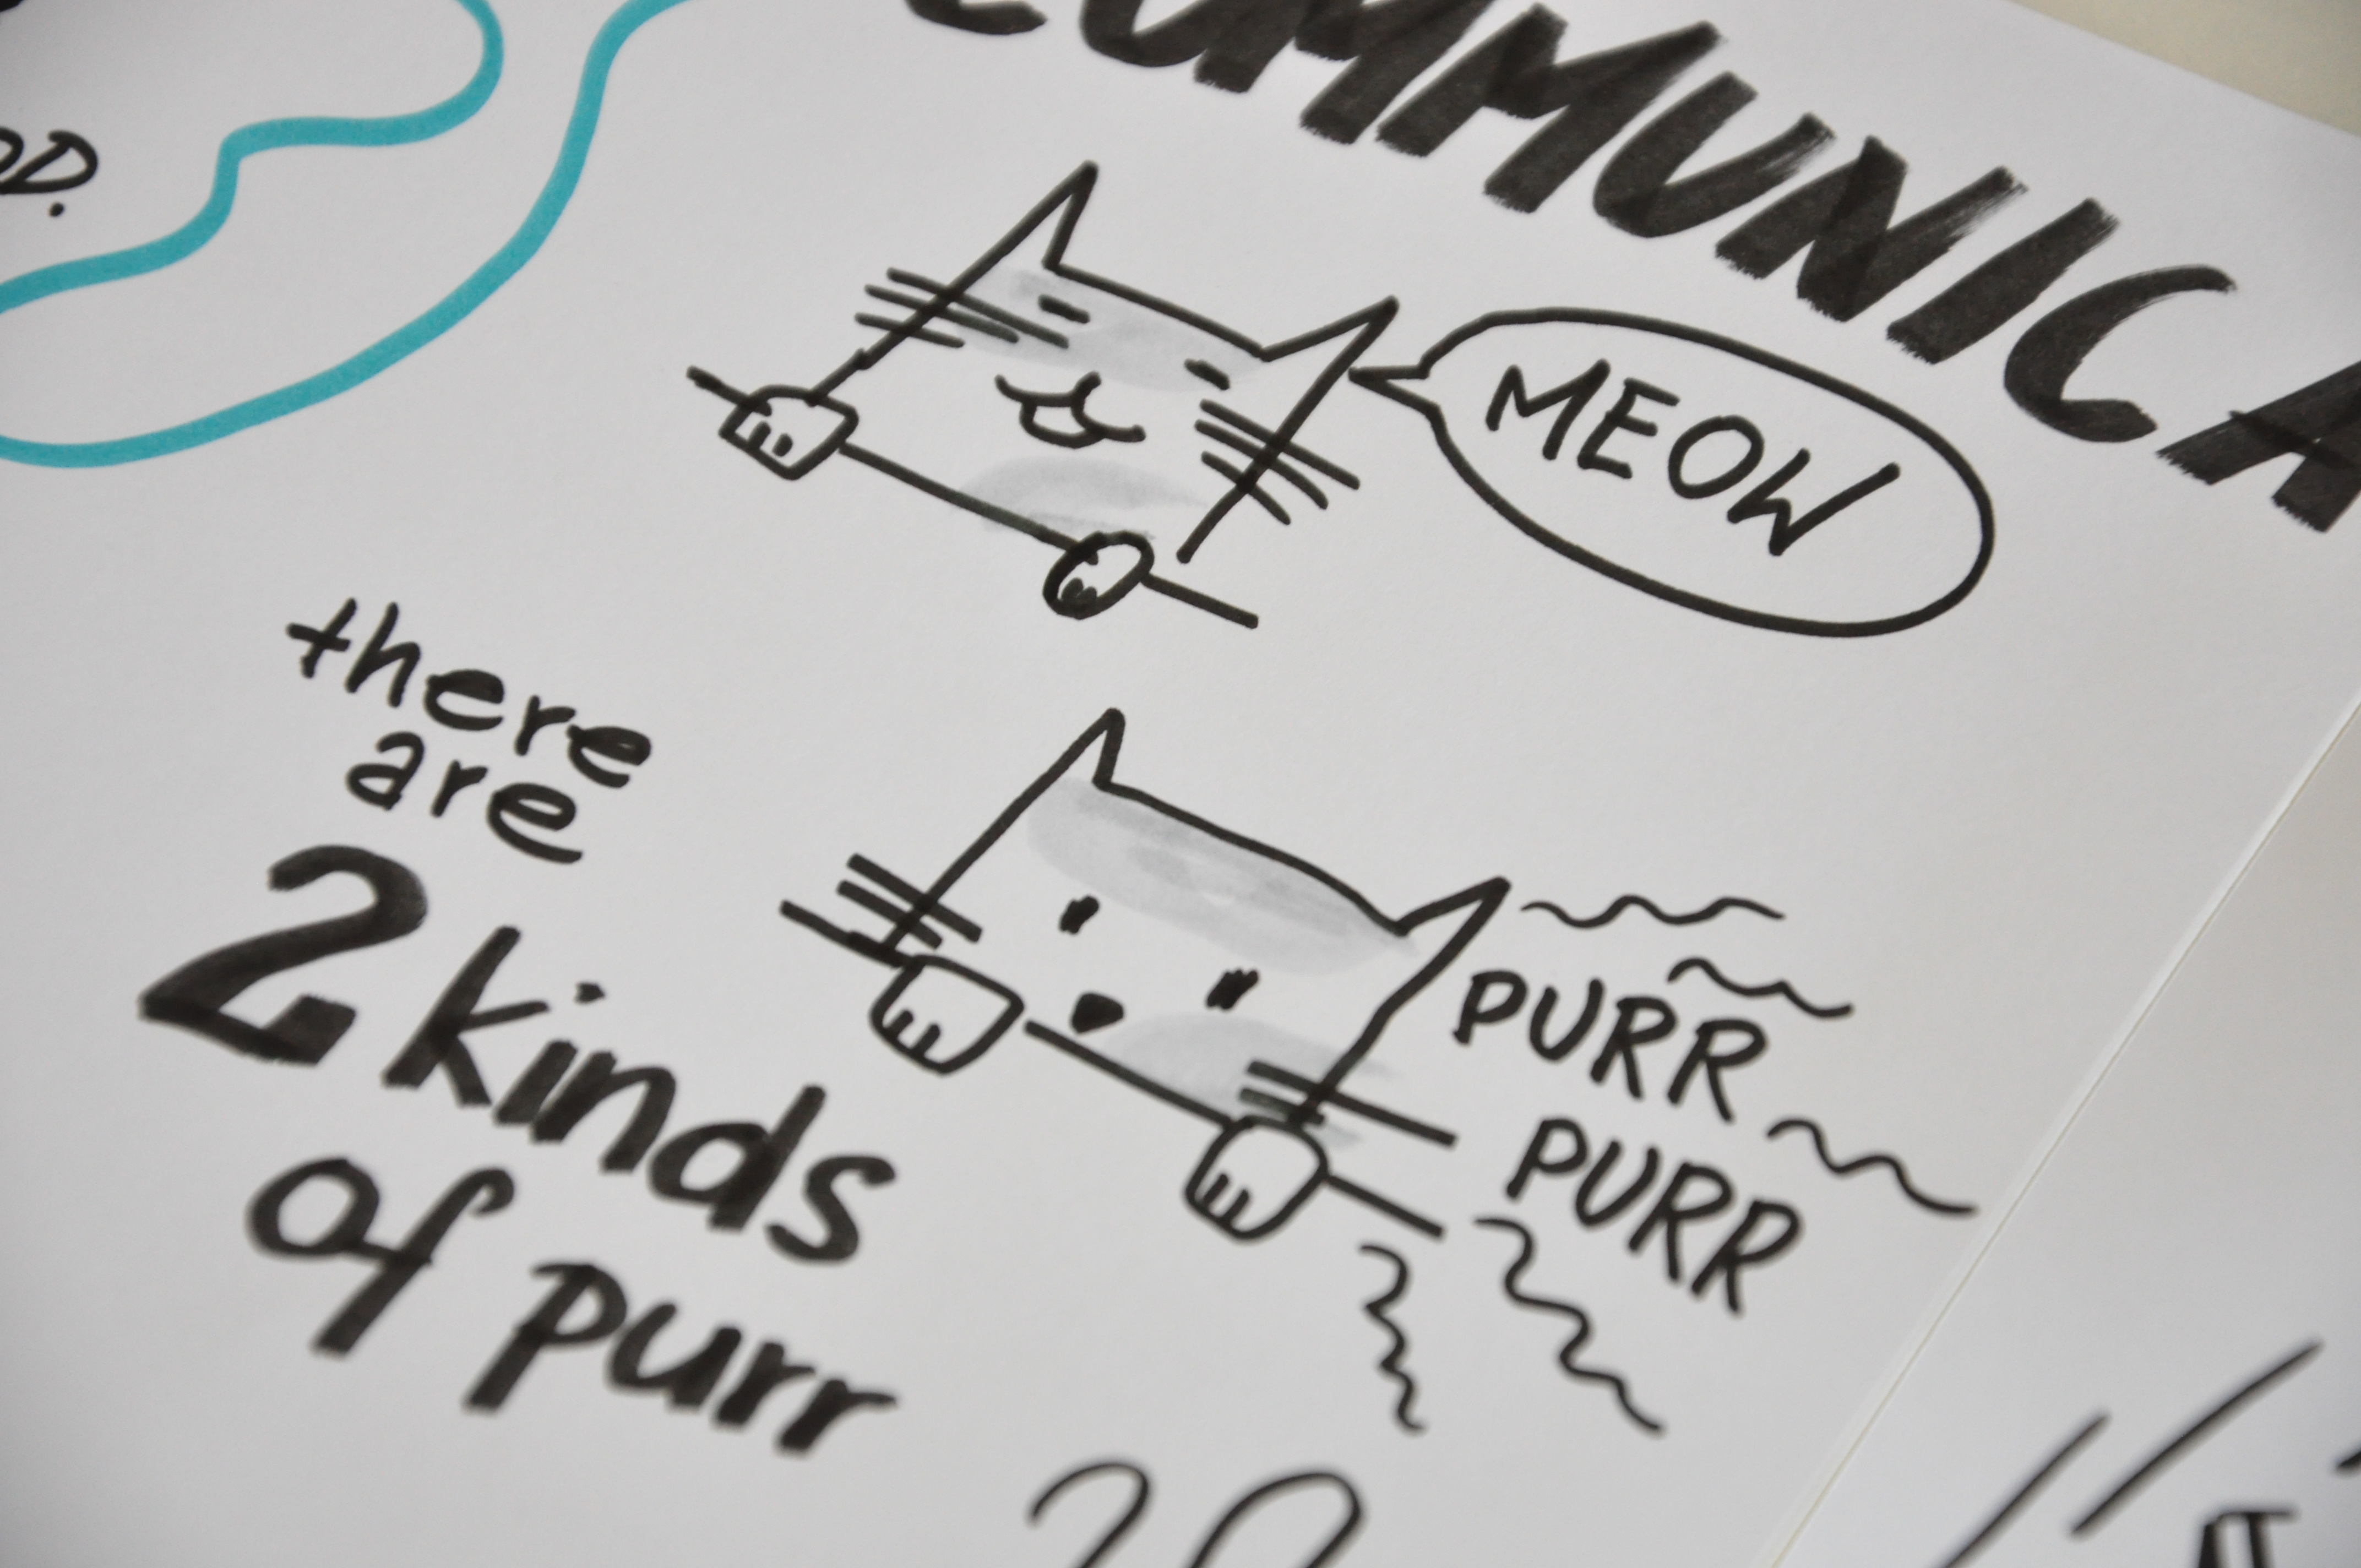 COMMUNICA
MEOW
there
are
2 kinds
of purr
PURR
PURR